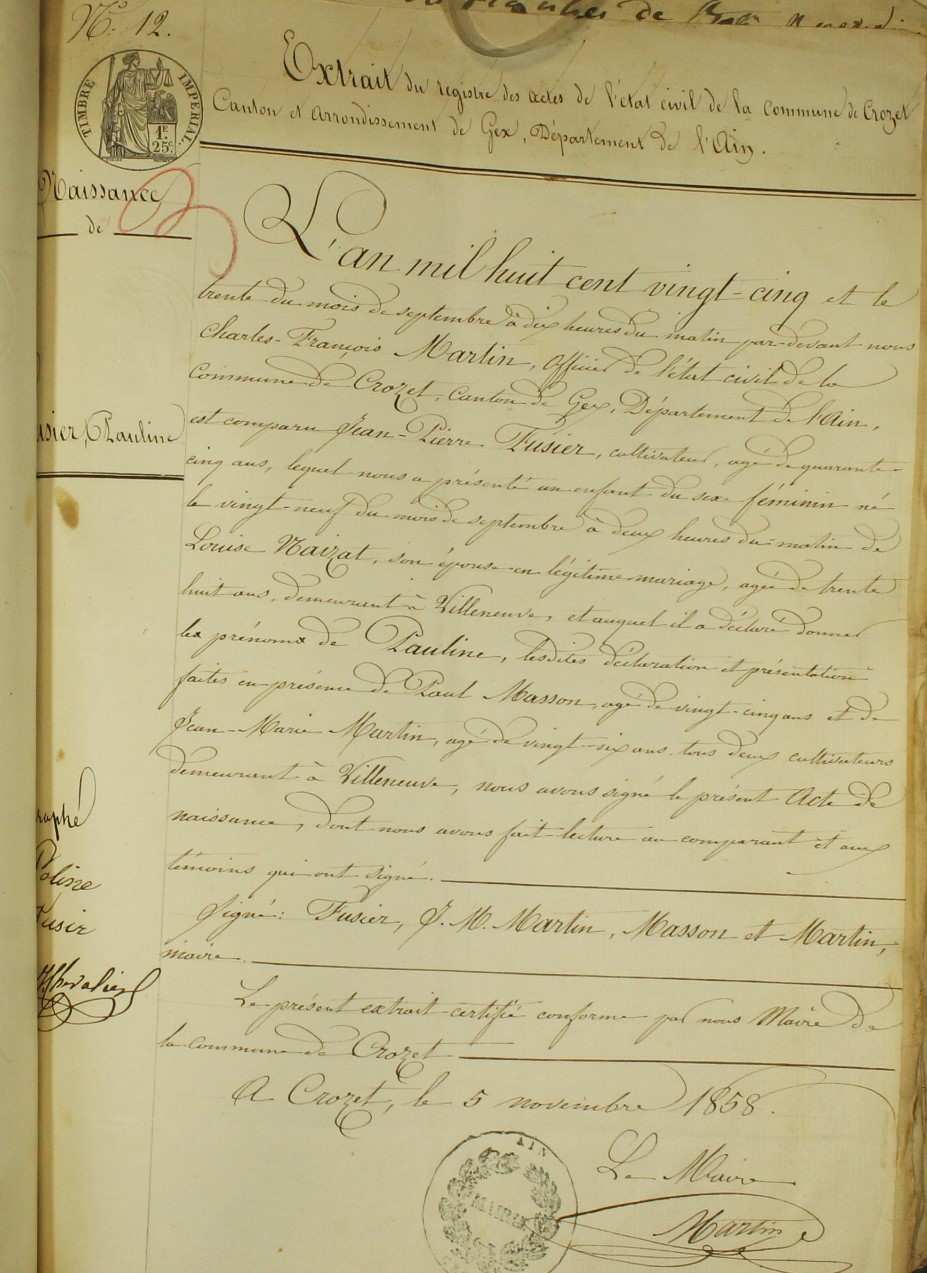 N.° 12.
de
TIMBRE IMPERIAL
1F.
25C.
Extrait du registre des actes de l'état civil de la commune de Crozet
Canton et Arrondissement de Gex, Département de l'Ain.
Naissance
de
usier, Pauline
L'an mil huit cent vingt-cinq et le
trente du mois de septembre à dix heures du matin par-devant nous
Charles-François Martin, officier de l'état civil de la
commune de Crozet, canton de Gex, Département de l'Ain,
est comparu Jean-Pierre Fusier, cultivateur, agé de quarante-
cinq ans, lequel nous a présenté un enfant du sexe féminin né
le vingt-neuf du mois de septembre à deux heures du matin de
Louise Naizat, son épouse en légitime mariage, agée de trente
huit ans, demeurant à Villeneuve, et auquel il a déclaré donner
les prénoms de Pauline, lesdites déclaration et présentation
faites en présence de Paul Masson, agé de vingt-cinq ans et de
Jean-Marie Martin, agé de vingt-six ans tous deux cultivateurs
demeurant à Villeneuve, nous avons signé le présent Acte de
naissance, dont nous avons fait lecture au comparant et aux
témoins qui ont signé.
Signé: Fusier, J. M. Martin, Masson et Martin,
maire.
Le présent extrait certifié conforme par nous Maire de
la commune de Crozet
A Crozet, le 5 novembre 1858.
Le Maire
Martin
raphé
Poline
fusir
Chevalier
AIN
MAIRIE